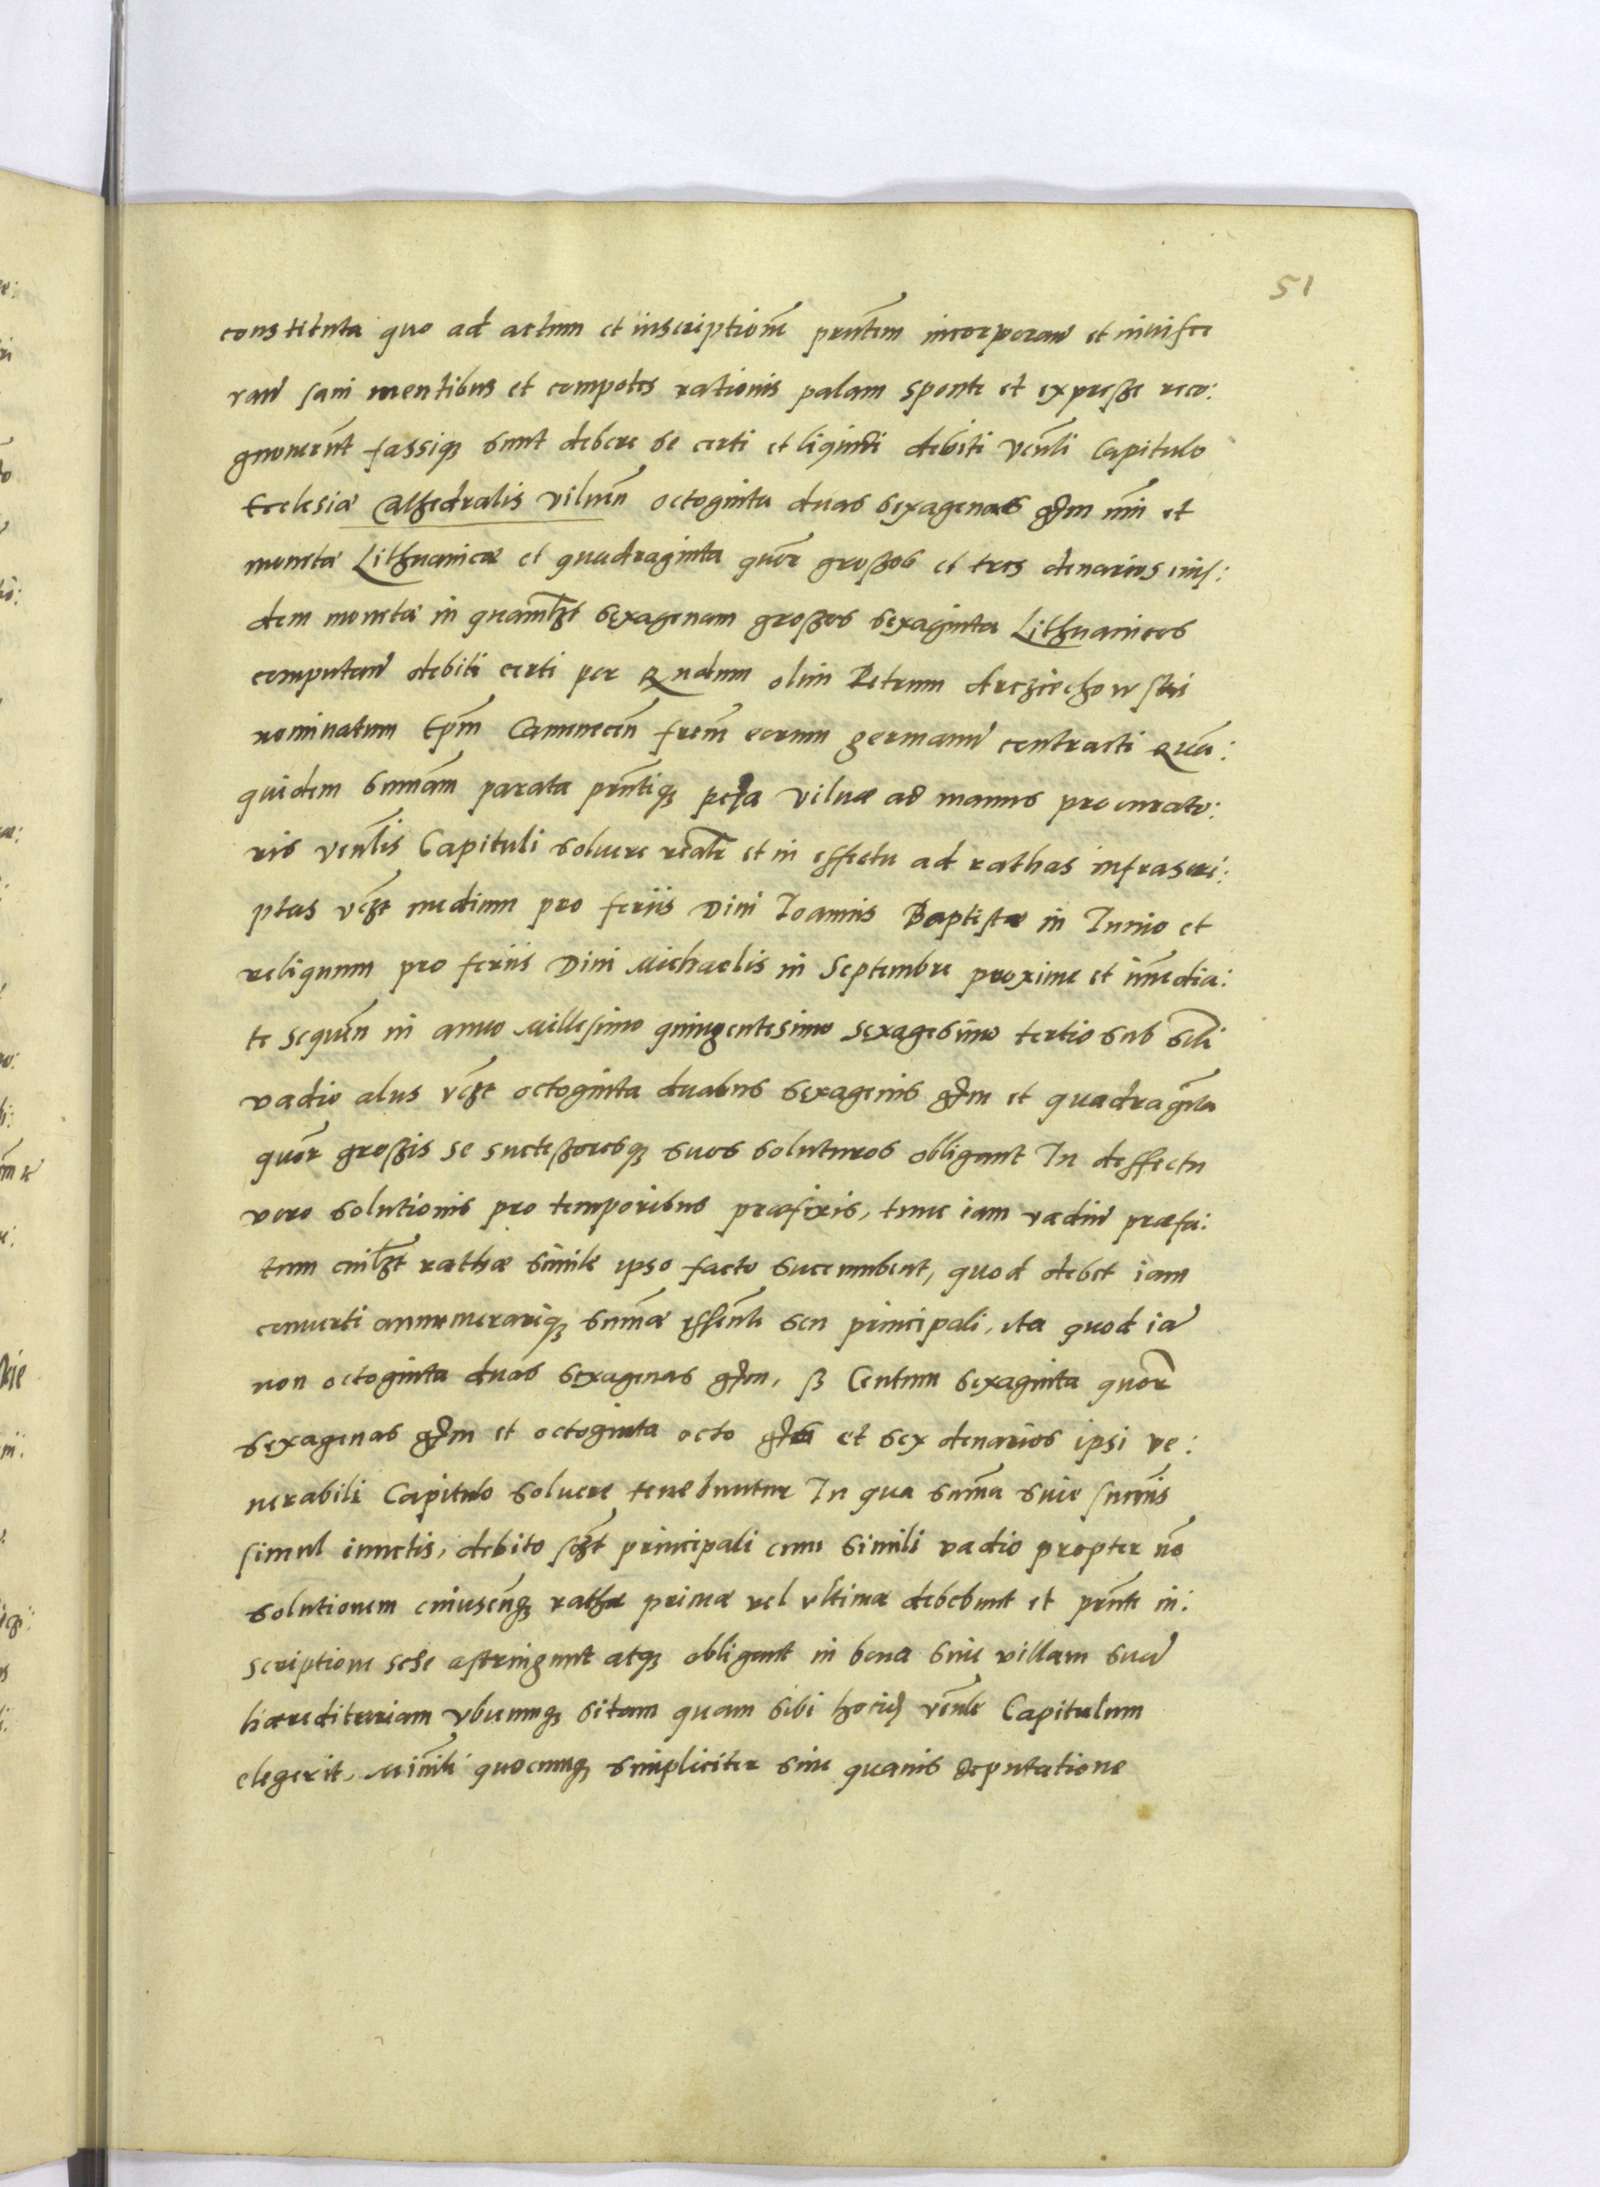 51
constituta quo ad actum et inscriptionē prntem incorporan et inuisce
ran sani mentibus et compotes rationis palam sponte et expresse reco:
gnouerūt fassiq sunt debere se certi et liquidi debiti Venli Capitulo
Ecclesiæ Cathedralis Vilnēn octoginta duas sexagenas grm nni et
monetæ Lithuanicæ et quadraginta quor grossos et tres denarios eius:
dem monetæ in quamlzt sexagenam grossos sexaginta Lithuanicos
computan debiti certi per Rndum olim Petrum Arcziechowski
nominatum Epm Camenecen frem eorum germanū contracti Quā:
quidem sumām parata prntiq Vilnæ ad manus procurato:
ris Venlis Capituli soluere realr et in effectu ad rathas infrascri:
ptas vczt medium pro feriis Diui Ioannis Baptistæ in Iunio et
reliquum pro feriis Diui Michaelis in Septembre proxime et īmedia:
te sequēn in anno Millesimo quingentesimo sexagesimo tertio sub sili
vadio alus vczt octoginta duabus sexagenis grm et quadragīta
quor grossis se successoresq suos soluturos obligant In deffectu
vero solutionis pro temporibus præfixis, tunc iam vadiū præfa:
tum cuilzt rathæ simile ipso facto succumbent, quod debet iam
conuerti annumerariq sumæ essenti seu principali, ita quod iā
non octoginta duas sexagenas grm, sz Centum sexaginta quor
sexagenas grm et octoginta octo gros et sex denarios ipsi ve:
nerabili Capitulo soluere tenebuntur In qua suma siue sumis
simul iunctis, debito sczt principali cum simili vadio propter nō
solutionem cuiuscūq rathæ primæ vel vltimæ debebunt et prnti in:
scriptione sese astringunt atq obligant in bona siue villam suā
hæreditariam vbicumq sitam quam sibi Venle Capitulum
elegerit, quocumq simpliciter sine quauis deputatione